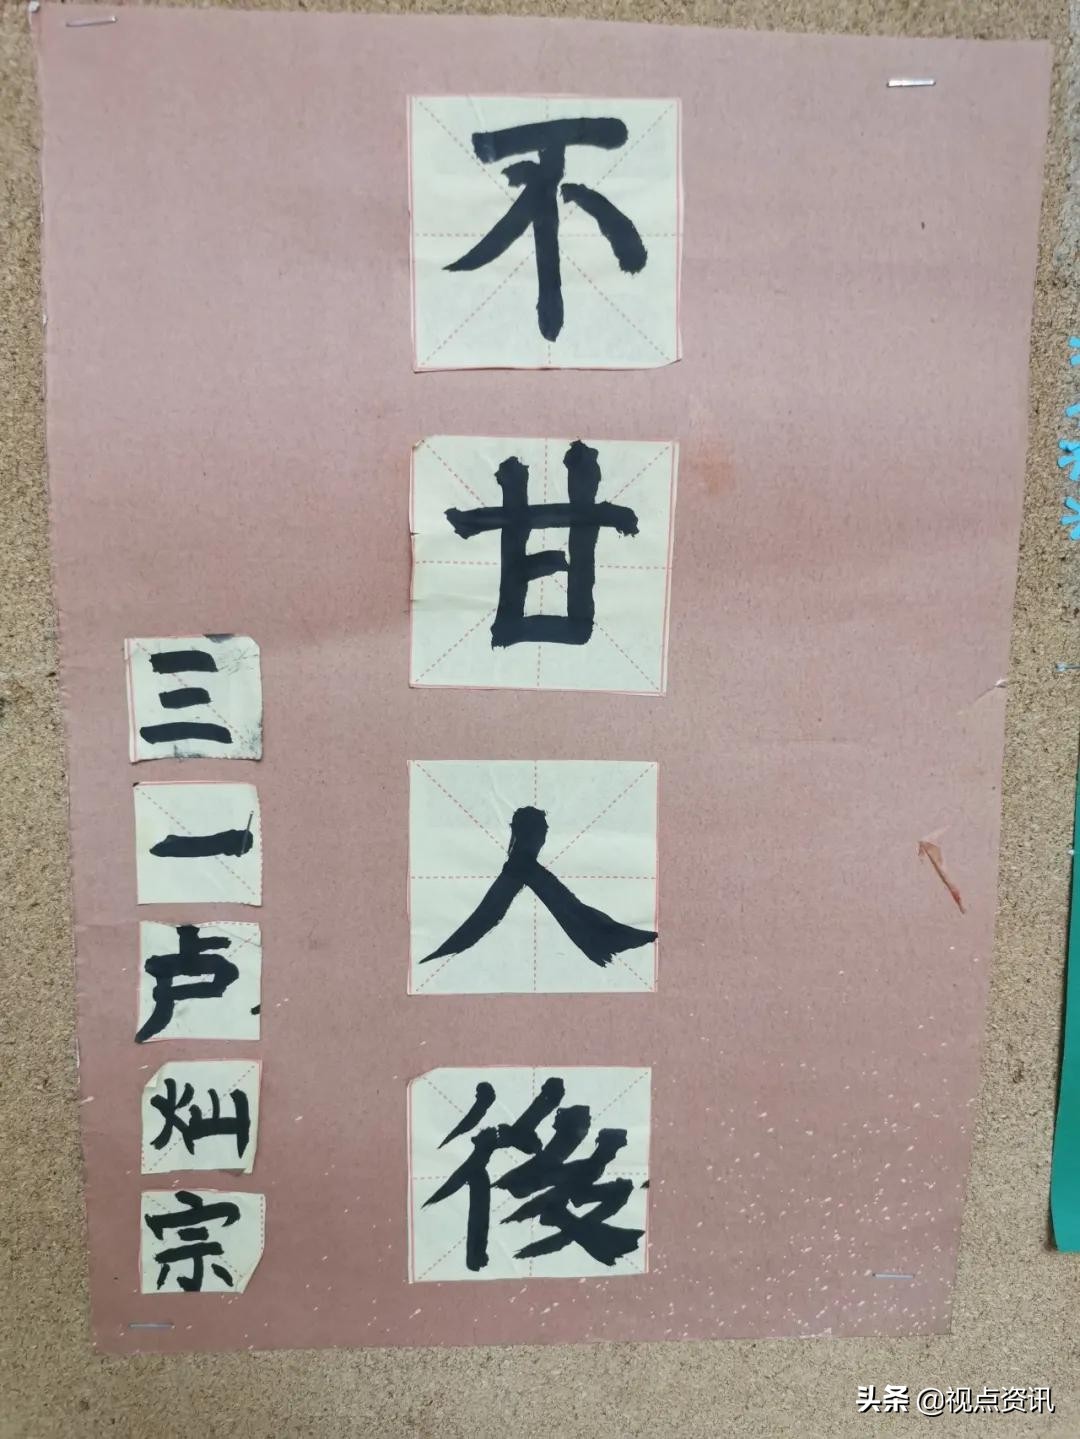 不甘人後
三一卢灿宗
头条 @视点资讯